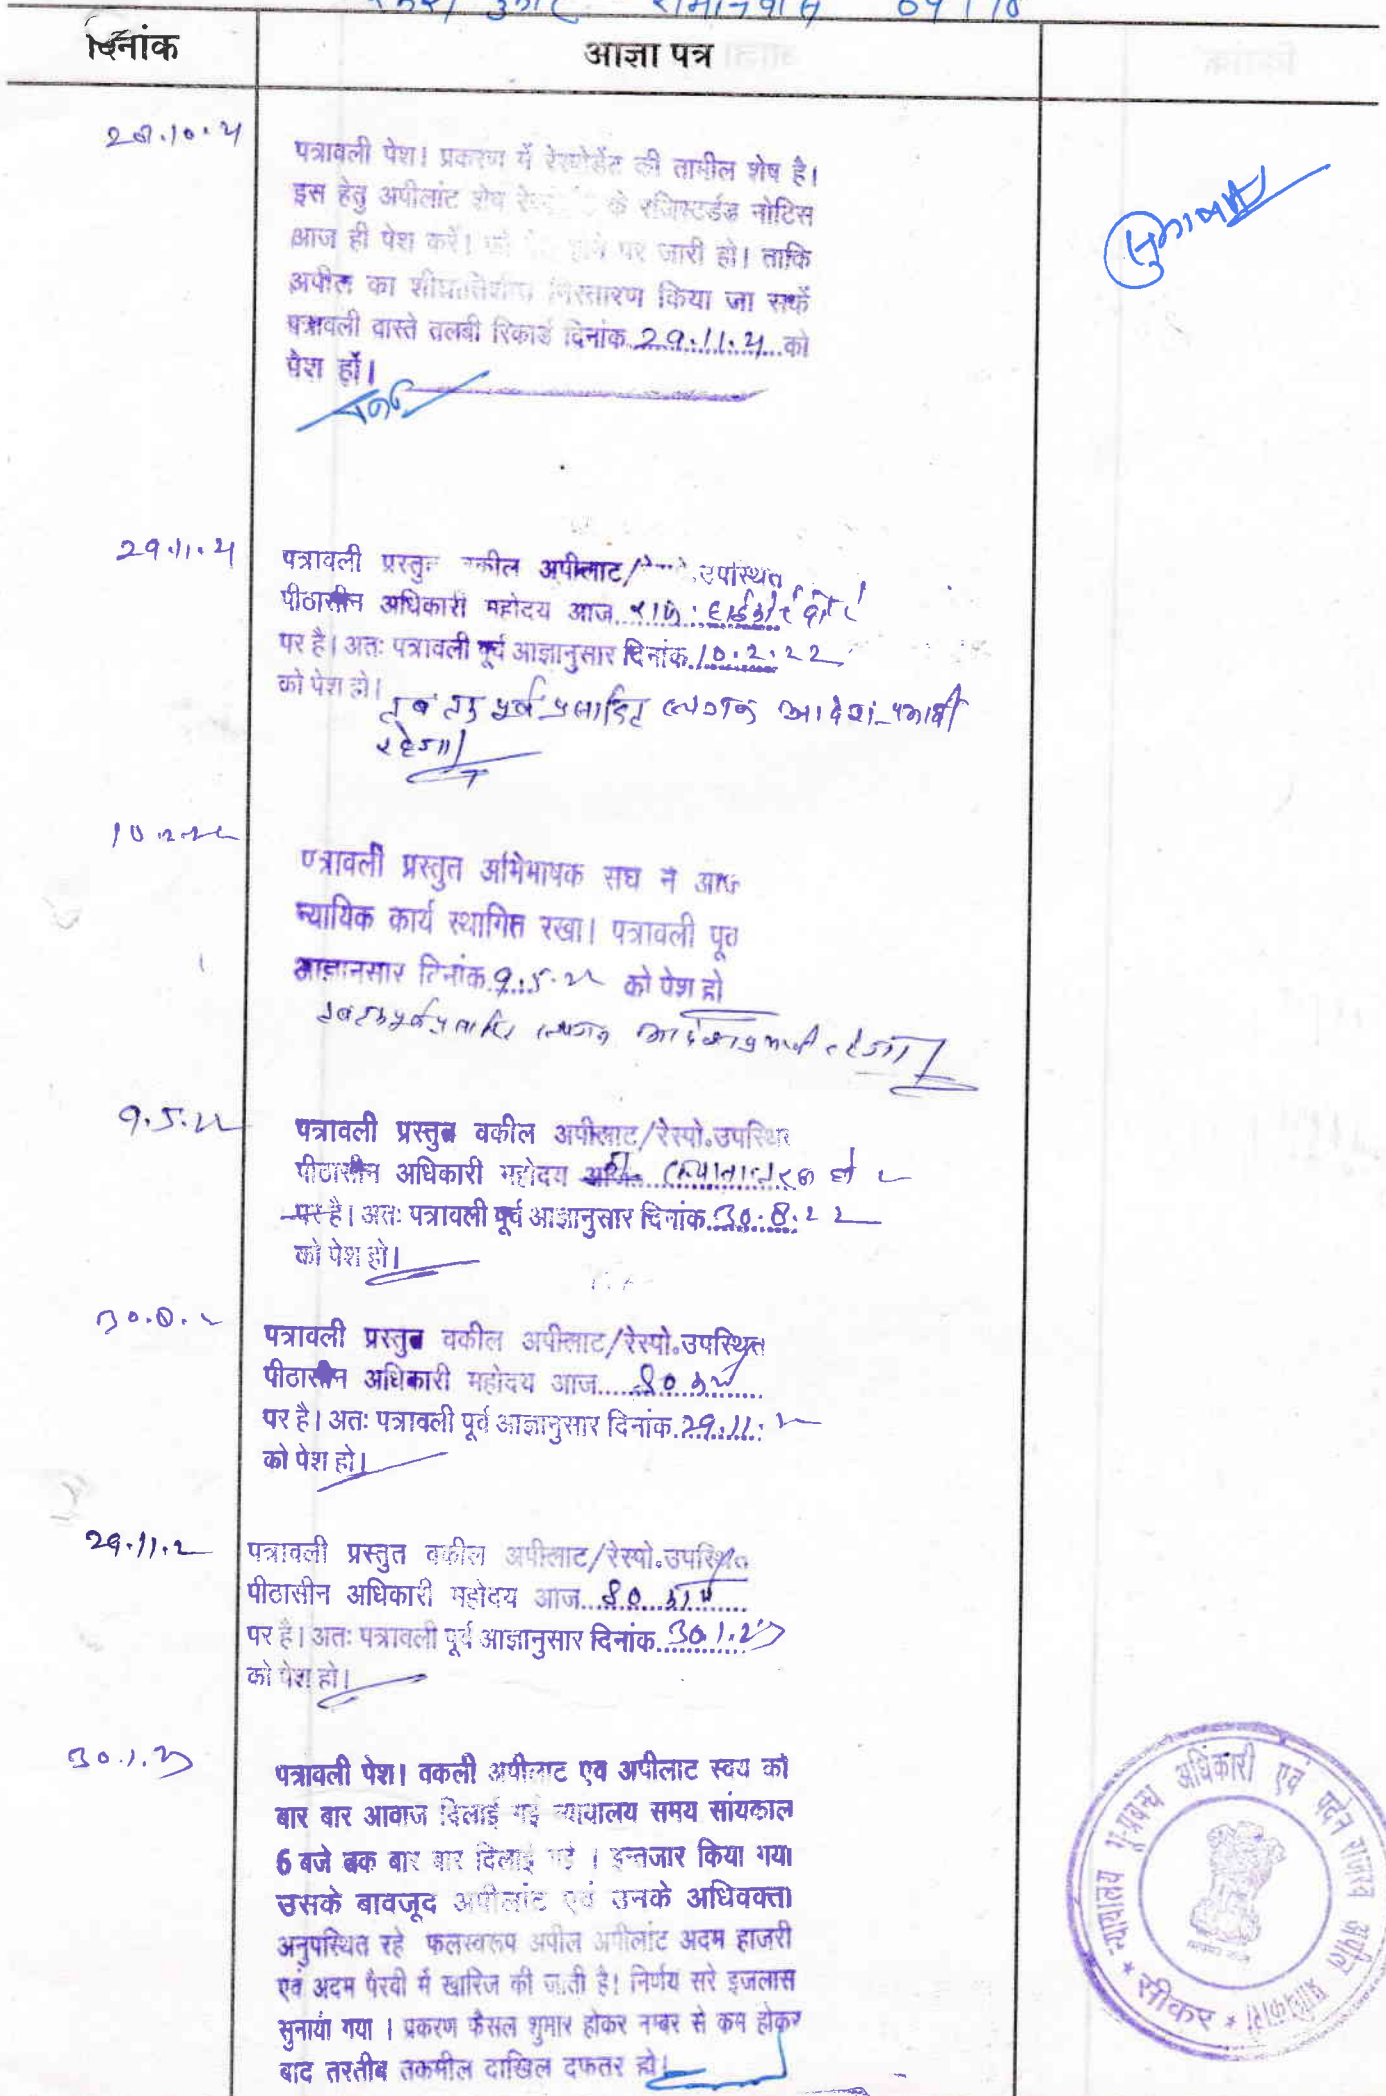 दिनांक आज्ञा पत्र
पत्रावली पेश। प्रकरण में रेस्पोडेंट की तामील शेष है।
इस हेतु अपीलांट शेष के रजिस्टर्डड नोटिस
आज ही पेश करें। पर जारी हो। ताकि
अपील का शीघ्रातिशीघ्र निस्तारण किया जा सकें
पत्रावली वास्ते तलबी रिकार्ड दिनांक 29.11.21 को
पेश हों।
29.11.21
पत्रावली प्रस्तुत वकील अपीलाट/ उपस्थित
पीठासीन अधिकारी महोदय आज
पर है। अतः पत्रावली पूर्व आज्ञानुसार दिनांक 10.2.22
को पेश हो।
पूर्व प्रसारित स्थगन आदेश प्रभावी
रहेगा।
10.2.22
पत्रावली प्रस्तुत अभिभाषक संघ ने आज
न्यायिक कार्य स्थागित रखा। पत्रावली पूर्व
आज्ञानसार दिनांक 9.5.22 को पेश हो
9.5.22
पत्रावली प्रस्तुत वकील अपीलाट/रेस्पो.उपस्थित
पीठासीन अधिकारी महोदय
पर है। अतः पत्रावली पूर्व आज्ञानुसार दिनांक 30.8.22
को पेश हो।
30.8.22
पत्रावली प्रस्तुत वकील अपीलाट/रेस्पो.उपस्थित
पीठासीन अधिकारी महोदय आज
पर है। अतः पत्रावली पूर्व आज्ञानुसार दिनांक 29.11.22
को पेश हो।
29.11.2
पत्रावली प्रस्तुत वकील अपीलाट/रेस्पो.उपस्थित
पीठासीन अधिकारी महोदय आज
पर है। अतः पत्रावली पूर्व आज्ञानुसार दिनांक 30.1.23
को पेश हो।
30.1.23
पत्रावली पेश। वकली अपीलाट एव अपीलाट स्वय को
बार बार आवाज दिलाई गई न्यायालय समय सांयकाल
6 बजे तक बार बार दिलाई गई । इन्तजार किया गया
उसके बावजूद अपीलांट एवं उनके अधिवक्ता
अनुपस्थित रहे फलस्वरूप अपील अपीलांट अदम हाजरी
एवं अदम पैरवी में खारिज की जाती है। निर्णय सरे इजलास
सुनाया गया । प्रकरण फैसल शुमार होकर नम्बर से कम होकर
बाद तरतीब तकमील दाखिल दफतर हो।
न्यायालय भू-प्रबन्ध अधिकारी एवं पदेन राजस्व अपील प्राधिकारी
* सीकर *